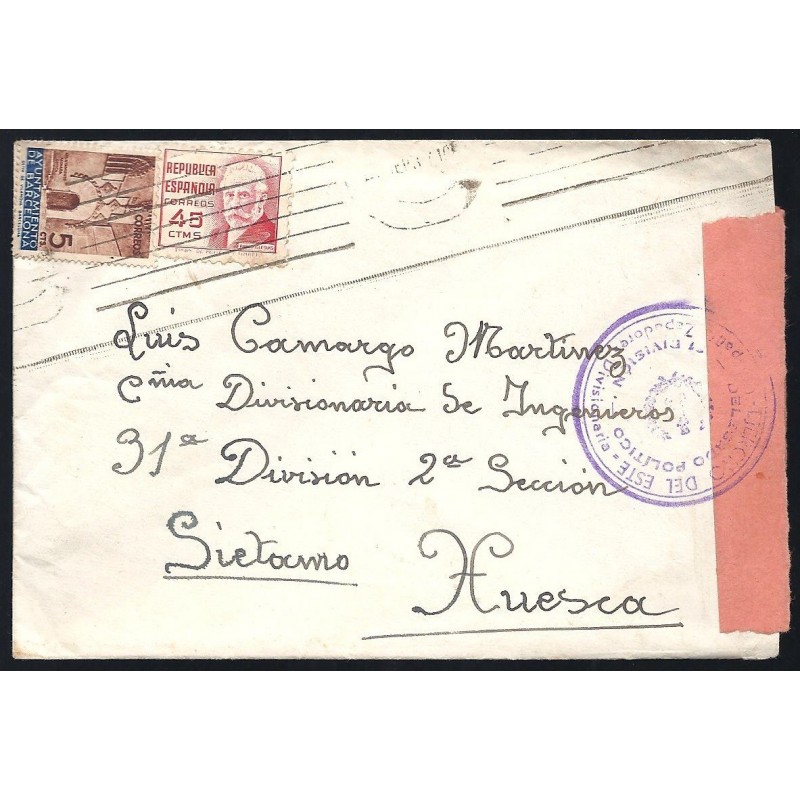 AYUNTAMIENTO
DE BARCELONA
CORREOS
5
REPUBLICA
ESPAÑOLA
CORREOS
45
CTMS
Luis Camargo Martinez
Cñia Divisionaria de Ingenieros
31ª División 2ª Sección
Sietamo
Huesca
DEL ESTE
Divisionaria
DIVISIÓN
POLÍTICO